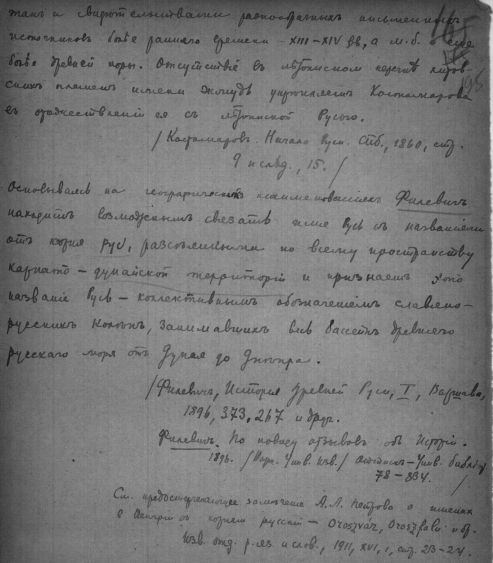 и свидѣтельствами разнообразныхъ письменныхъ
источниковъ болѣе ранняго времени – XIII–XIV вв., а м.б. и еще
болѣе древней поры. Отсутствіе въ лѣтописномъ перечнѣ
племенъ имени Жмудь укрѣпляетъ Костомарова
въ отождествленіи ея съ лѣтописной Русью.
/ Костомаровъ. Начало Руси. Спб., 1860, стр.
9 и слѣд., 15. /
Основываясь на географической номенклатурѣ Филевичъ
находитъ возможнымъ связать имя Русь съ названіями
отъ корня рус, разсѣянными по всему пространству
карпато – дунайской территоріи и признаетъ
названіе Русь – коллективнымъ обозначеніемъ славяно-
русскихъ колѣнъ, занимавшихъ весь бассейнъ древняго
русскаго моря отъ Дуная до Днѣпра.
/ Филевичъ, Исторія древней Руси, I, Варшава,
1896, 373, 267 и друг.
Филевичъ. По поводу отзывовъ объ Исторіи.
1896. / Варш. Унив. Изв. /
78 – 834. /
См. предостерегающее замѣчаніе А.Л. Петрова о имени
в Венгріи съ корнемъ русскій – Oroszvár, Oroszfalu и др.
Изв. отд. р. яз. и слов., 1911, XVI, 1, стр. 23–24.